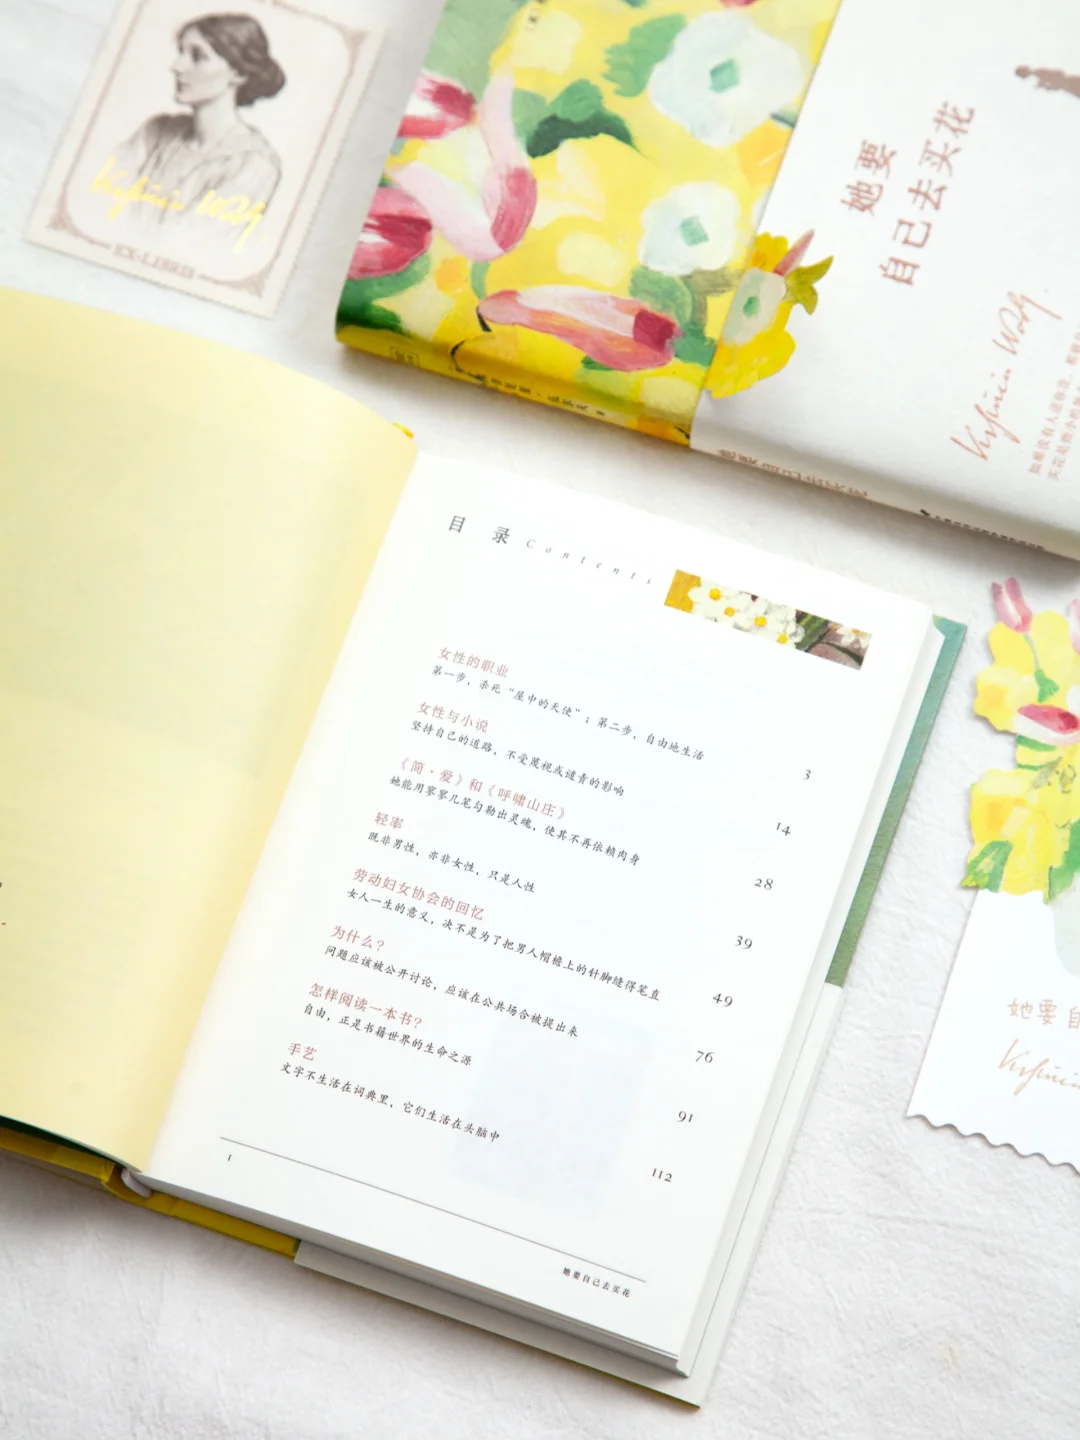 EX-LIBRIS
Virginia Woolf
她要
自己去买花
Virginia Woolf
如果没有人送你花
她要自己去买花
目 录 Contents
女性的职业
第一步，杀死“屋中的天使”；第二步，自由地生活 3
女性与小说
坚持自己的道路，不受蔑视或谴责的影响 14
《简·爱》和《呼啸山庄》
她能用寥寥几笔勾勒出灵魂，使其不再依赖肉身 28
轻率
既非男性，亦非女性，只是人性 39
劳动妇女协会的回忆
女人一生的意义，决不是为了把男人帽檐上的针脚缝得笔直 49
为什么？
问题应该被公开讨论，应该在公共场合被提出来 76
怎样阅读一本书？
自由，正是书籍世界的生命之源 91
手艺
文字不生活在词典里，它们生活在头脑中 112
1
她要自己去买花
她要自